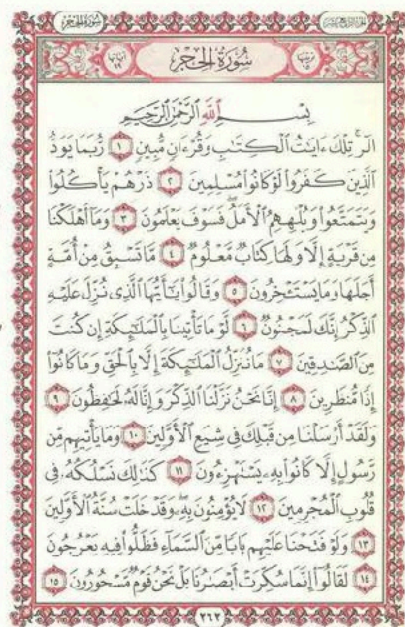 سُورَةُ الحِجْر
سُورَةُ الحِجْر
بِسْمِ اللَّهِ الرَّحْمَٰنِ الرَّحِيمِ
الٓر ۚ تِلْكَ ءَايَٰتُ ٱلْكِتَٰبِ وَقُرْءَانٍ مُّبِينٍ ١ رُّبَمَا يَوَدُّ
ٱلَّذِينَ كَفَرُوا۟ لَوْ كَانُوا۟ مُسْلِمِينَ ٢ ذَرْهُمْ يَأْكُلُوا۟
وَيَتَمَتَّعُوا۟ وَيُلْهِهِمُ ٱلْأَمَلُ ۖ فَسَوْفَ يَعْلَمُونَ ٣ وَمَآ أَهْلَكْنَا
مِن قَرْيَةٍ إِلَّا وَلَهَا كِتَابٌ مَّعْلُومٌ ٤ مَّا تَسْبِقُ مِنْ أُمَّةٍ
أَجَلَهَا وَمَا يَسْتَـْٔخِرُونَ ٥ وَقَالُوا۟ يَٰٓأَيُّهَا ٱلَّذِى نُزِّلَ عَلَيْهِ
ٱلذِّكْرُ إِنَّكَ لَمَجْنُونٌ ٦ لَّوْ مَا تَأْتِينَا بِٱلْمَلَٰٓئِكَةِ إِن كُنتَ
مِنَ ٱلصَّٰدِقِينَ ٧ مَا نُنَزِّلُ ٱلْمَلَٰٓئِكَةَ إِلَّا بِٱلْحَقِّ وَمَا كَانُوٓا۟
إِذًا مُّنظَرِينَ ٨ إِنَّا نَحْنُ نَزَّلْنَا ٱلذِّكْرَ وَإِنَّا لَهُۥ لَحَٰفِظُونَ ٩
وَلَقَدْ أَرْسَلْنَا مِن قَبْلِكَ فِى شِيَعِ ٱلْأَوَّلِينَ ١٠ وَمَا يَأْتِيهِم مِّن
رَّسُولٍ إِلَّا كَانُوا۟ بِهِۦ يَسْتَهْزِءُونَ ١١ كَذَٰلِكَ نَسْلُكُهُۥ فِى
قُلُوبِ ٱلْمُجْرِمِينَ ١٢ لَا يُؤْمِنُونَ بِهِۦ ۖ وَقَدْ خَلَتْ سُنَّةُ ٱلْأَوَّلِينَ
١٣ وَلَوْ فَتَحْنَا عَلَيْهِم بَابًا مِّنَ ٱلسَّمَآءِ فَظَلُّوا۟ فِيهِ يَعْرُجُونَ
١٤ لَقَالُوٓا۟ إِنَّمَا سُكِّرَتْ أَبْصَٰرُنَا بَلْ نَحْنُ قَوْمٌ مَّسْحُورُونَ ١٥
٢٦٢